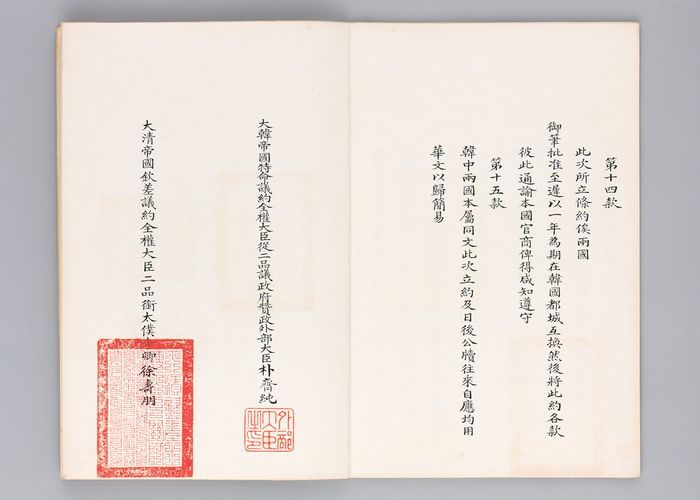 第十四款
此次所立條約俟兩國
御筆批准至遲以一年為期在韓國都城互換然後將此約各款
彼此通諭本國官商俾得咸知遵守
第十五款
韓中兩國本屬同文此次立約及日後公牘往來自應均用
華文以歸簡易
大韓帝國特命議約全權大臣從二品議政府贊政外部大臣朴齊純
外部大臣之印
大清帝國欽差議約全權大臣二品銜太僕寺卿徐壽朋